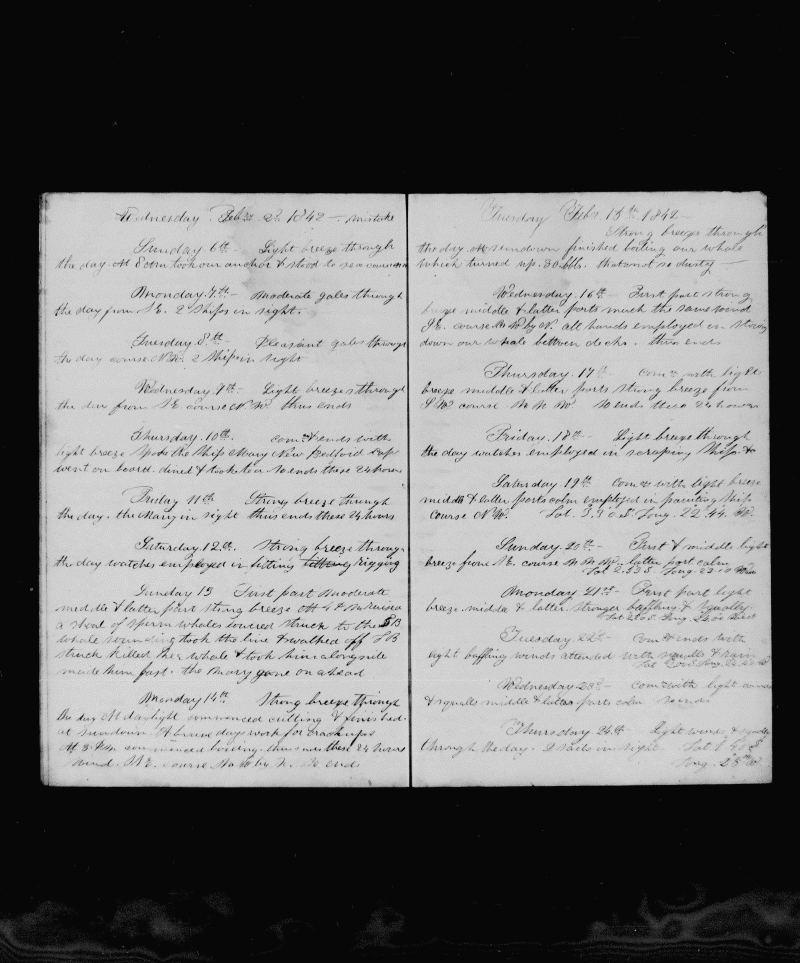 Wednesday Feb. 2d 1842 — mistake
Sunday 6th — Light breeze through
the day. At 8 am took our anchor & stood to sea
Monday 7th — Moderate gales through
the day from S.E. 2 Ships in sight.
Tuesday 8th — Pleasant gales through
the day course N.W. 2 Ships in sight
Wednesday 9th — Light breezes through
the day from S.E. course N.W. thus ends
Thursday 10th. Comc & ends with
light breeze Spoke the Ship Mary New Bedford Capt
went on board. dined & took tea So ends these 24 hours
Friday 11th Strong breeze through
the day. the Mary in sight thus ends these 24 hours
Saturday 12th. Strong breeze through
the day watches employed in fitting rigging
Sunday 13 First part moderate
middle & latter part strong breeze At 4 P.M. raised
a shoal of sperm whales lowered struck to the SB
whale sounding took the line & walked off LB
struck killed her whale & took him alongside
made him fast. the Mary gone on ahead
Monday 14th Strong breeze through
the day At daylight commenced cutting & finished
at sundown. A brave days work for
At 8 P.m commenced boiling. thus ends these 24 hours
Wind S.E. course No W by N. So ends
Tuesday Feb. 15th 1842
Strong breeze through
the day. At sundown finished boiling our whale
which turned up 30 bbls. that not so dusty —
Wednesday 16th — First part strong
breeze middle & latter parts much the same wind
S.E. course No W by N. all hands employed in stowing
down our whale between decks. thus ends
Thursday 17th Comc with light
breeze middle & latter parts strong breeze from
course W.N.W. So ends these 24 hours
Friday. 18th — Light breeze through
the day watches employed in scraping Ship &c
Saturday 19th Comc with light breeze
middle & latter parts calm employed in painting Ship
course N.W. Lat. Long. 22.44. W.
Sunday 20th — First & middle light
breeze from S.E. course latter part calm
Lat Long
Monday 21st — First part light
breeze. middle & latter stronger baffling & squally
Lat Long
Tuesday 22d — Com & ends with
light baffling winds attended with squalls & rain
Lat Long
Wednesday 23d — Comc with light winds
& squalls middle & latter parts calm So ends
Thursday 24th — Light winds & squalls
through the day. 2 sails in sight. Lat S
Long. 25 W